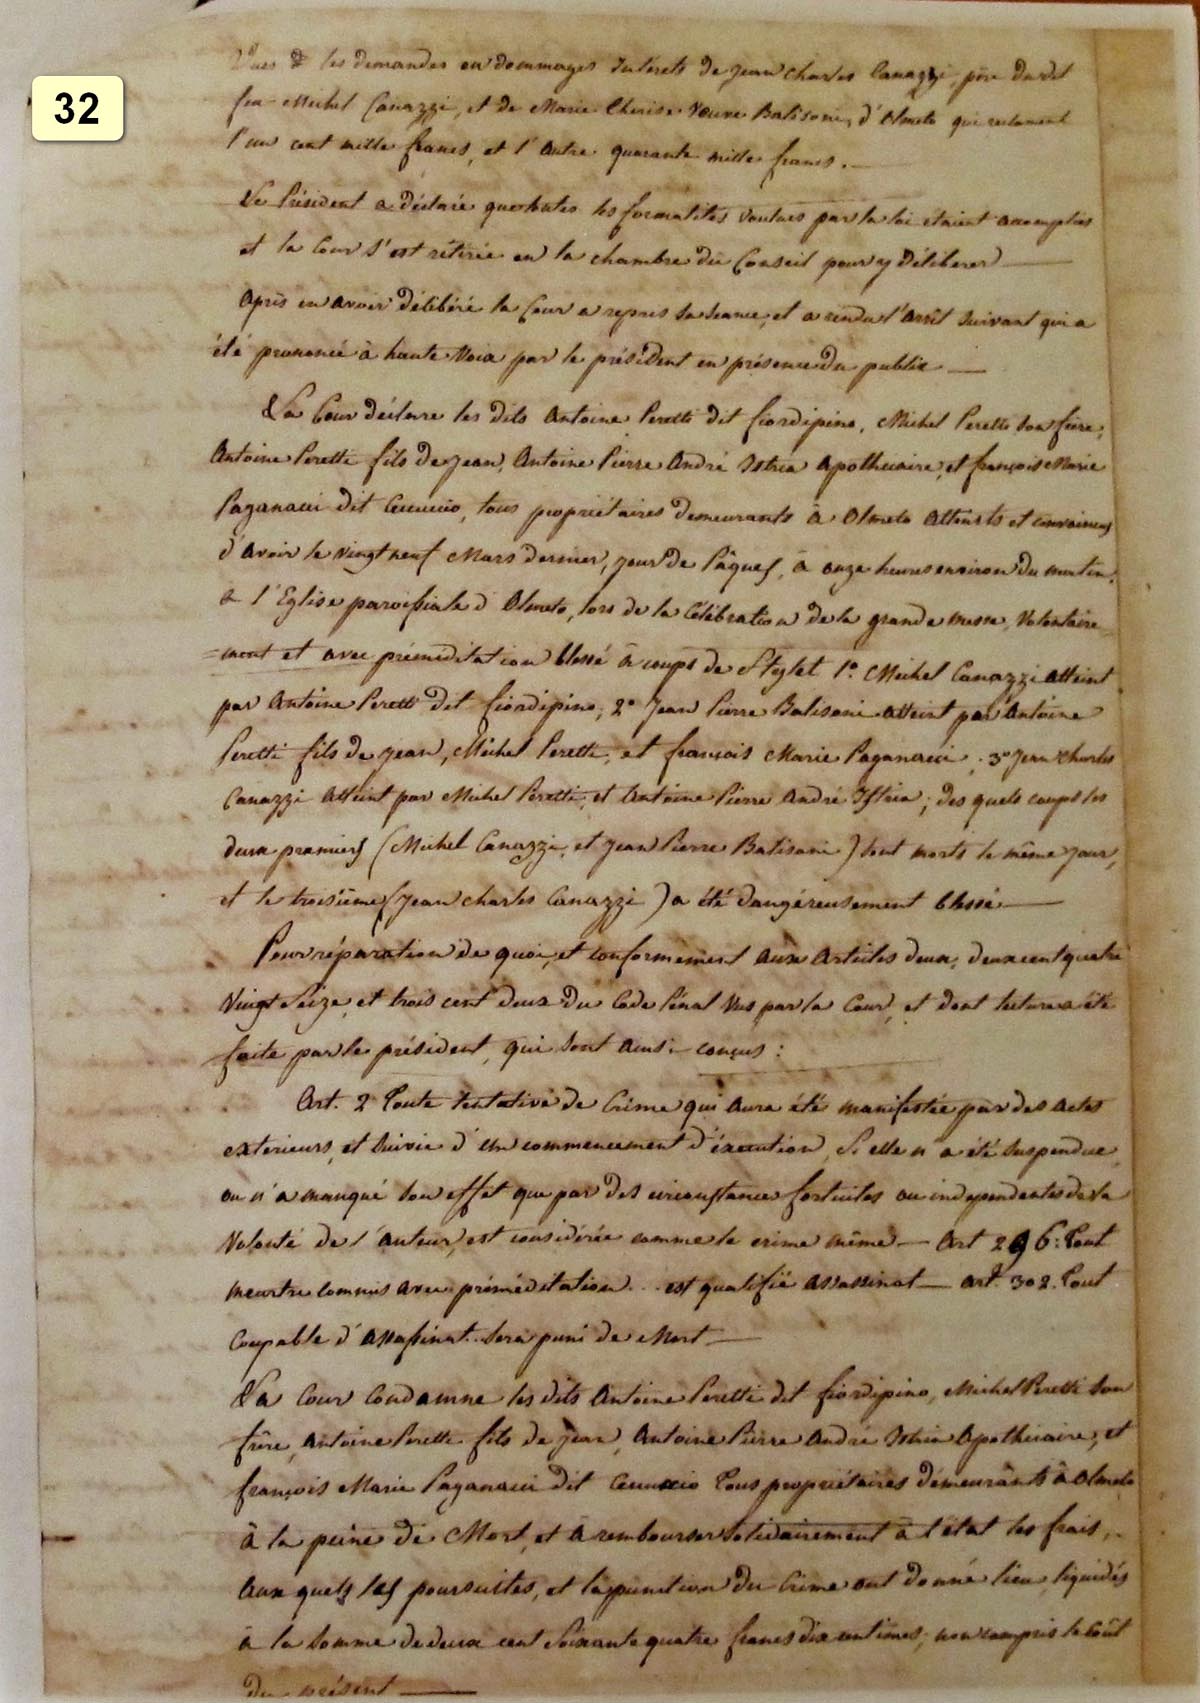 32
Vues les demandes en dommages Intérets de Jean Charles Canazzi, père dudit
feu Michel Canazzi, et de Marie Thérèse Veuve Balisoni, d'Olmeto qui reclament
l'un cent mille francs, et l'Autre quarante mille francs.
Le Président a déclaré que toutes les formalités voulues par la loi étaient accomplies
et la Cour s'est rétirée en la chambre du Conseil pour y Déliberer
Après en avoir délibéré la Cour a repris sa séance, et a rendu l'Arrêt suivant qui a
été prononcé à haute Voix par le président en présence du public
La Cour déclare les dits Antoine Peretti dit fiordipino, Michel Peretti son frère,
Antoine Peretti fils de Jean, Antoine Pierre André Istria Apothicaire, et françois Marie
Paganacci dit Ceccuccio, tous propriétaires demeurants à Olmeto Atteints et convaincus
d'avoir le vingt neuf Mars dernier, jour de Pâques, à onze heures environ du matin,
à l'Eglise paroissiale d'Olmeto, lors de la Célébration de la grande messe, Volontaire=
=ment et avec préméditation blessé à coups de Stylet 1.° Michel Canazzi atteint
par Antoine Peretti dit fiordipino; 2° Jean Pierre Balisoni atteint par Antoine
Peretti fils de Jean, Michel Peretti, et françois Marie Paganacci; 3° Jean Charles
Canazzi Atteint par Michel Peretti, et Antoine Pierre André Istria; des quels coups les
deux premiers (Michel Canazzi, et Jean Pierre Balisoni) sont morts le même jour,
et le troisième (Jean Charles Canazzi) a été dangéreusement blessé
Pour réparation de quoi, et conformement aux Articles deux, deux cent quatre
Vingt Seize, et trois cent deux du Code Pénal Vus par la Cour, et dont lecture a été
faite par le président, qui sont ainsi conçus:
Art. 2 Toute tentative de Crime qui aura été manifestée par des actes
exterieurs, et suivie d'un commencement d'éxecution, Si elle n'a été suspendue,
ou n'a manqué son effet que par des circonstances fortuites ou independentes de la
Volonté de l'auteur, est considérée comme le crime même — Art 296: Tout
meurtre commis avec préméditation... est qualifié Assassinat — art. 302. Tout
Coupable d'Assassinat.. sera puni de Mort
La Cour Condamne les dits Antoine Peretti dit fiordipino, Michel Peretti son
frère, Antoine Peretti fils de Jean, Antoine Pierre André Istria Apothicaire, et
françois Marie Paganacci dit Ceccuccio Tous propriétaires démeurants à Olmeto
à la peine de Mort, et à rembourser solidairement à l'état les frais,
aux quels les poursuites, et la punition du Crime ont donné lieu, liquidés
à la Somme de deux cent Soixante quatre francs dix centimes, non compris le Coût
du présent